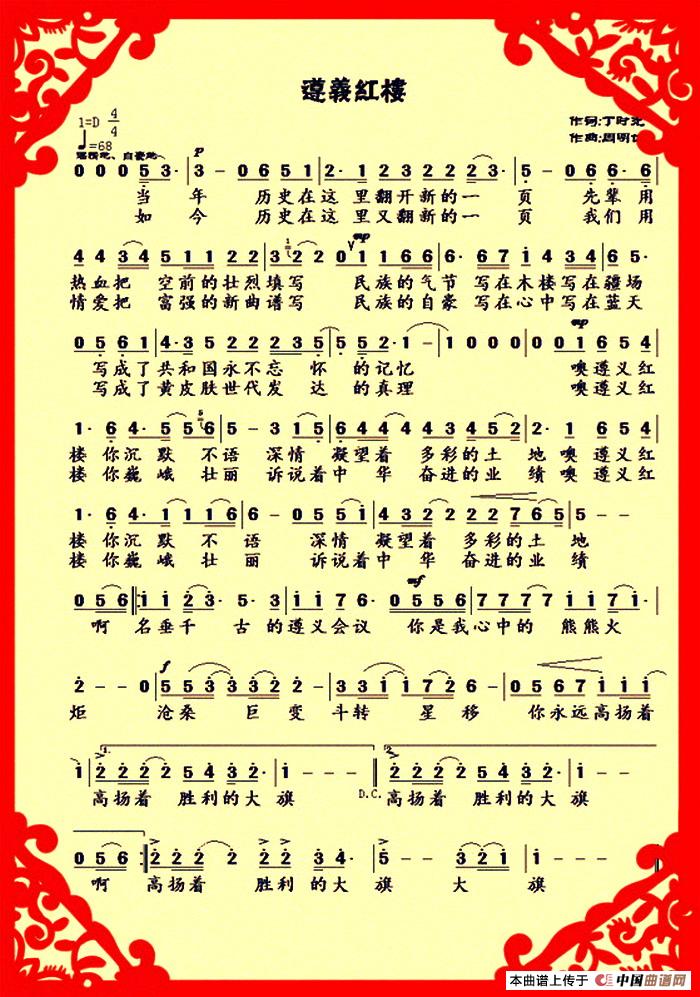 遵義紅樓
1=D 4/4
♩=68
作词:丁时光
作曲:周明
p
0 0 0 5 3· 3 0 6 5 1 2· 1 2 3 2 2 2 3 2 5 - 0 6 6· 6
当年 历史在这里翻开新的一页 先辈用
如今 历史在这里又翻新的一页 我们用
mp
4 4 3 4 5 1 1 2 2 3 2 2 0 1 1 6 6 6· 6 6 7 1 4 3 4 6 5·
热血把 空前的壮烈填写 民族的气节 写在木楼写在疆场
情爱把 富强的新曲谱写 民族的自豪 写在心中写在蓝天
mp
0 5 6 1 4· 3 5 2 2 2 3 5 5 5 2· 1 - 1 0 0 0 0 0 1 6 5 4
写成了共和国永不忘怀的记忆 噢遵义红
写成了黄皮肤世代发达的真理 噢遵义红
1· 6 4· 5 5 6 5 - 3 1· 5 6 4 4 4 4 3 4 5 2 2· 1 6 5 4
楼你沉默不语 深情凝望着多彩的土地噢遵义红
楼你巍峨壮丽 诉说着中华奋进的业绩噢遵义红
1· 6 4· 1 1 1 6 - 0 5 5 1 4 3 2 2 2 2 7 6 5 5 - -
楼你沉默不语 深情凝望着多彩的土地
楼你巍峨壮丽 诉说着中华奋进的业绩
mf
0 5 6 1 1 2 2 3· 5· 3 1 1 7 6· 0 5 5 6 7 7 7 7 1 1 6·
啊名垂千古的遵义会议 你是我心中的熊熊火
f
2 - - 0 5 5 3 3 3 2 2 - 3 3 1 1 7 2 6 - 0 5 6 7 1 1 1
炬 沧桑巨变斗转星移 你永远高扬着
1.
2.
1 2 2 2 2 5 4 3 2· 1 - - - 2 2 2 2 5 4 3 2· 1 - - -
D.C.
高扬着胜利的大旗 高扬着胜利的大旗
0 5 6 2 2 2 2 3 2 2 3 4· 5 - - 3 2 1 1 - - -
啊高扬着胜利的大旗大旗
本曲谱上传于 中国曲谱网